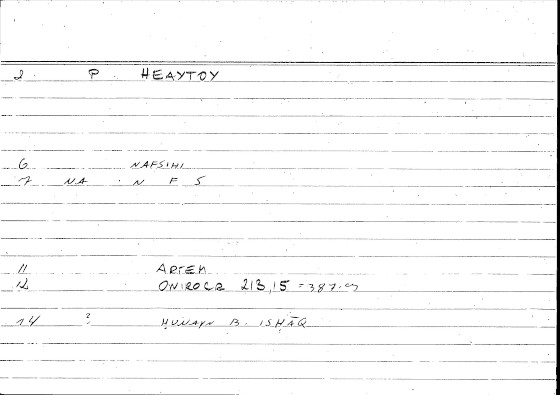 2 P ΗΕΑΥΤΟΥ
6 NAFSIHI
7 NA N F S
11 ARTEM
12 ONIROCR 213,15 = 387.9
14 ? ḤUNAYN B. ISḤĀQ